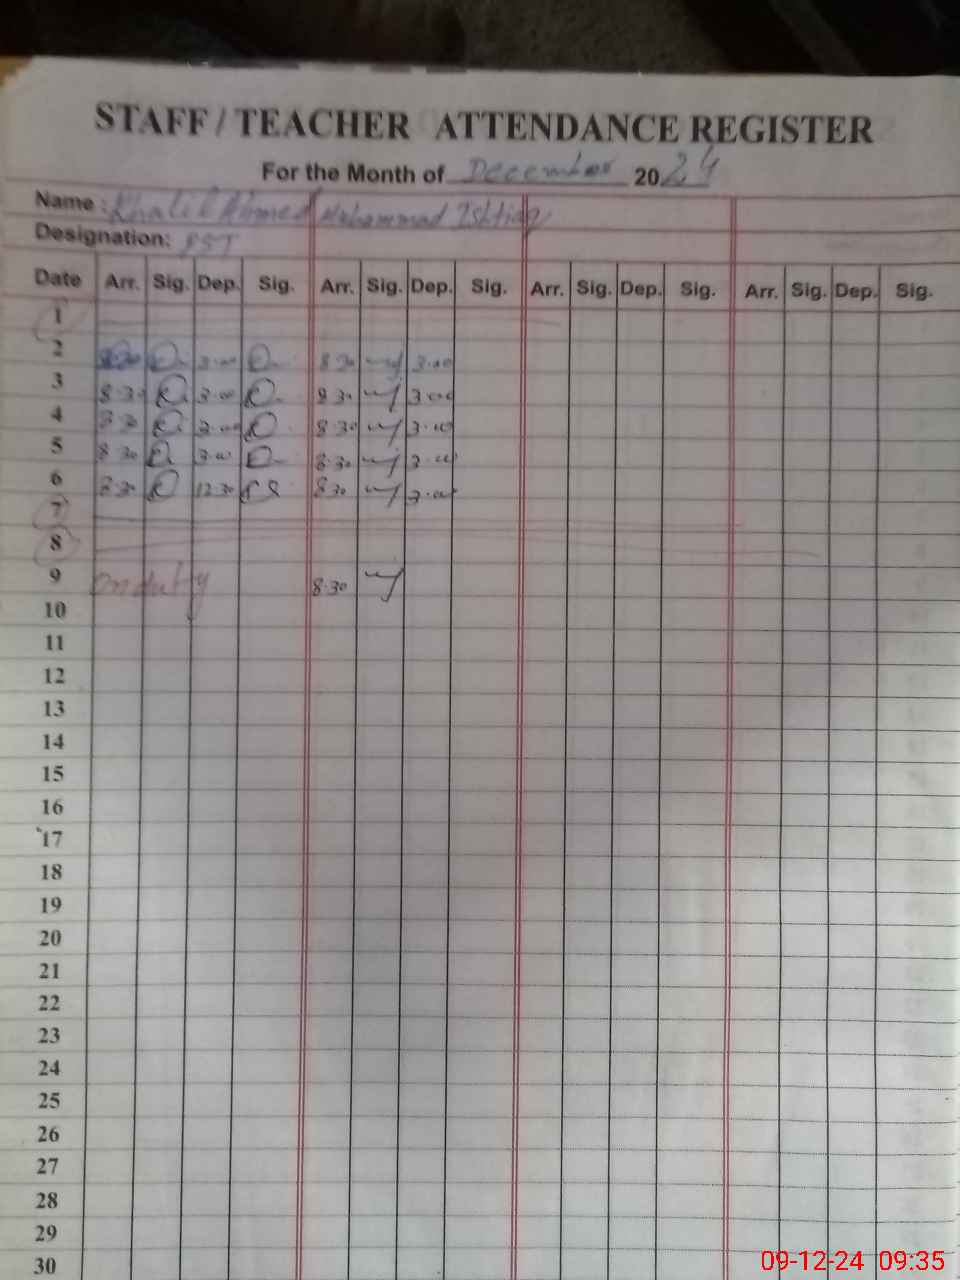 STAFF / TEACHER ATTENDANCE REGISTER
For the Month of December 2024
Name : Khalil Ahmed Muhammad Ishtiaq
Designation: PST
Date Arr. Sig. Dep. Sig. Arr. Sig. Dep. Sig. Arr. Sig. Dep. Sig. Arr. Sig. Dep. Sig.
1
2 8:30 3.00 8.30 3.00
3 8.30 3.00 8.30 3.00
4 8.30 3.00 8.30 3.00
5 8.30 3.00 8.30 3.00
6 8.30 12.30 8.30 3.00
7
8
9 on duty 8.30
10
11
12
13
14
15
16
17
18
19
20
21
22
23
24
25
26
27
28
29
30
09-12-24 09:35